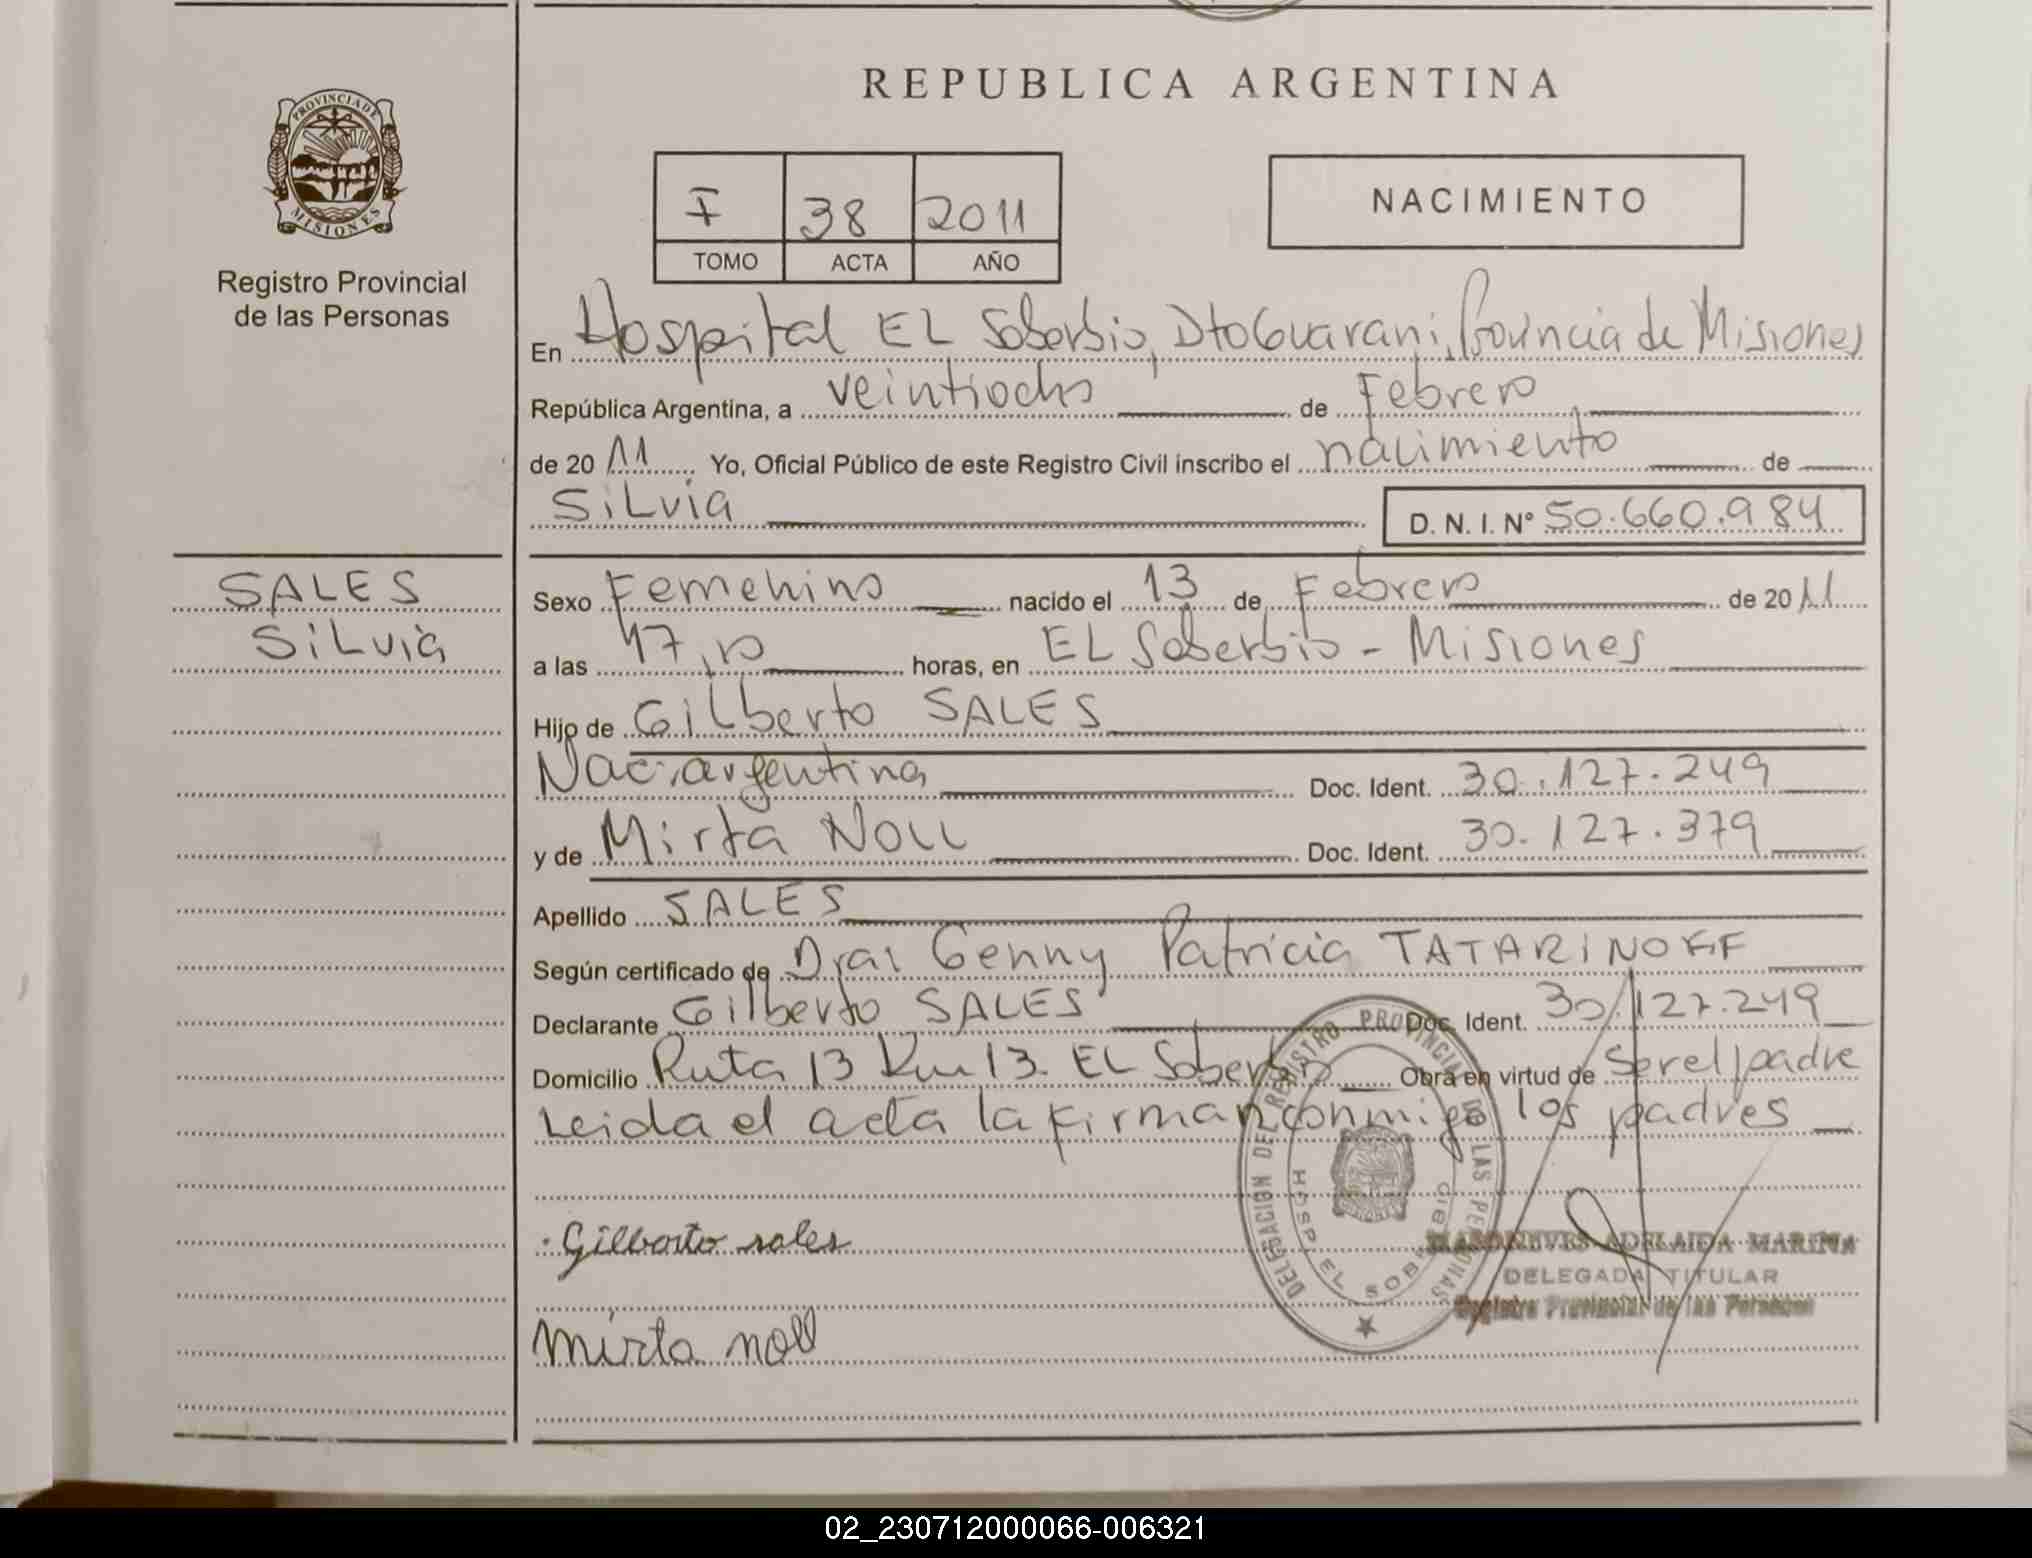 REPUBLICA ARGENTINA
PROVINCIA DE MISIONES
Registro Provincial
de las Personas
I 38 2011
TOMO ACTA AÑO
NACIMIENTO
En Hospital EL Soberbio, Dto Guarani, Provincia de Misiones
República Argentina, a veintiocho de Febrero
de 2011 Yo, Oficial Público de este Registro Civil inscribo el nacimiento de
SiLvia D. N. I. Nº 50.660.984
SALES
SiLvia
Sexo Femenino nacido el 13 de Febrero de 2011
a las 17,10 horas, en EL Soberbio - Misiones
Hijo de GiLberto SALES
Nac. argentina Doc. Ident. 30.127.249
y de Mirta NOLL Doc. Ident. 30.127.379
Apellido SALES
Según certificado de Dra. Genny Patricia TATARINOFF
Declarante Gilberto SALES Doc. Ident. 30.127.249
Domicilio Ruta 13 Km 13. EL Soberbio Obra en virtud de Ser el padre
Leida el acta la firman conmigo los padres
DELEGACION DEL REGISTRO PROVINCIAL DE LAS PERSONAS
HOSP EL SOBERBIO
Gilberto sales
ADELAIDA MARINA
DELEGADA TITULAR
Registro Provincial de las Personas
mirta noll
02_230712000066-006321